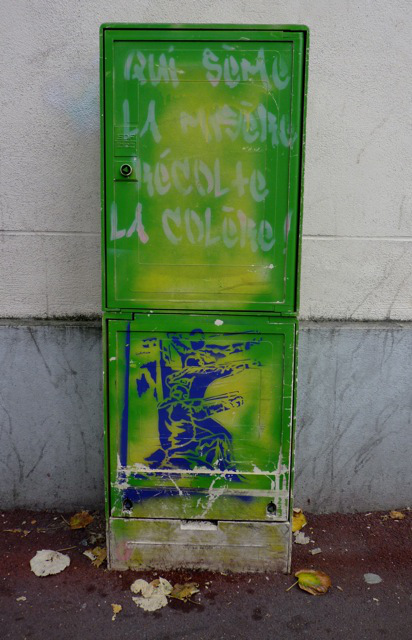 QUI SÈME
LA MISÈRE
RÉCOLTE
LA COLÈRE !